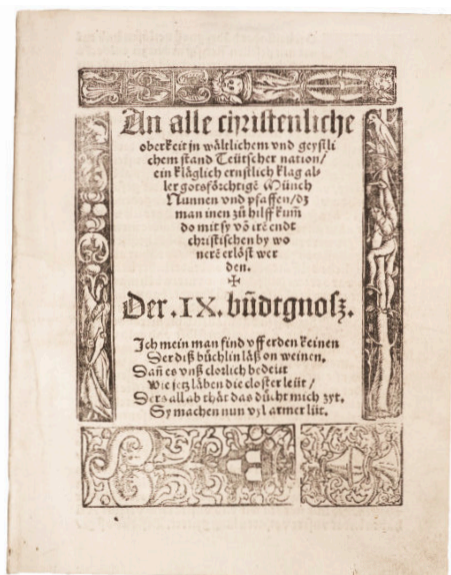 An alle christenliche
oberkeit jn wåltlichem vnd geystli
chem stand Teütscher nation/
ein kläglich ernstlich klag al⸗
ler gotsförchtigē Münch
Nunnen vnd pfaffen/ dz
man inen zů hilff kum̄
do mit sy vō irē endt
christischen by wo
nerē erlößt wer
den.
✠
Der .IX. bůdtgnosz.
Jch mein man find vff erden keinen
Der diß bůchlin låß on weinen.
Dan̄ es vnß clorlich bedeut
Wie jetz låben die closter leüt/
Ders all ab thåt das dücht mich zyt.
Sy machen nun vyl armer lüt.